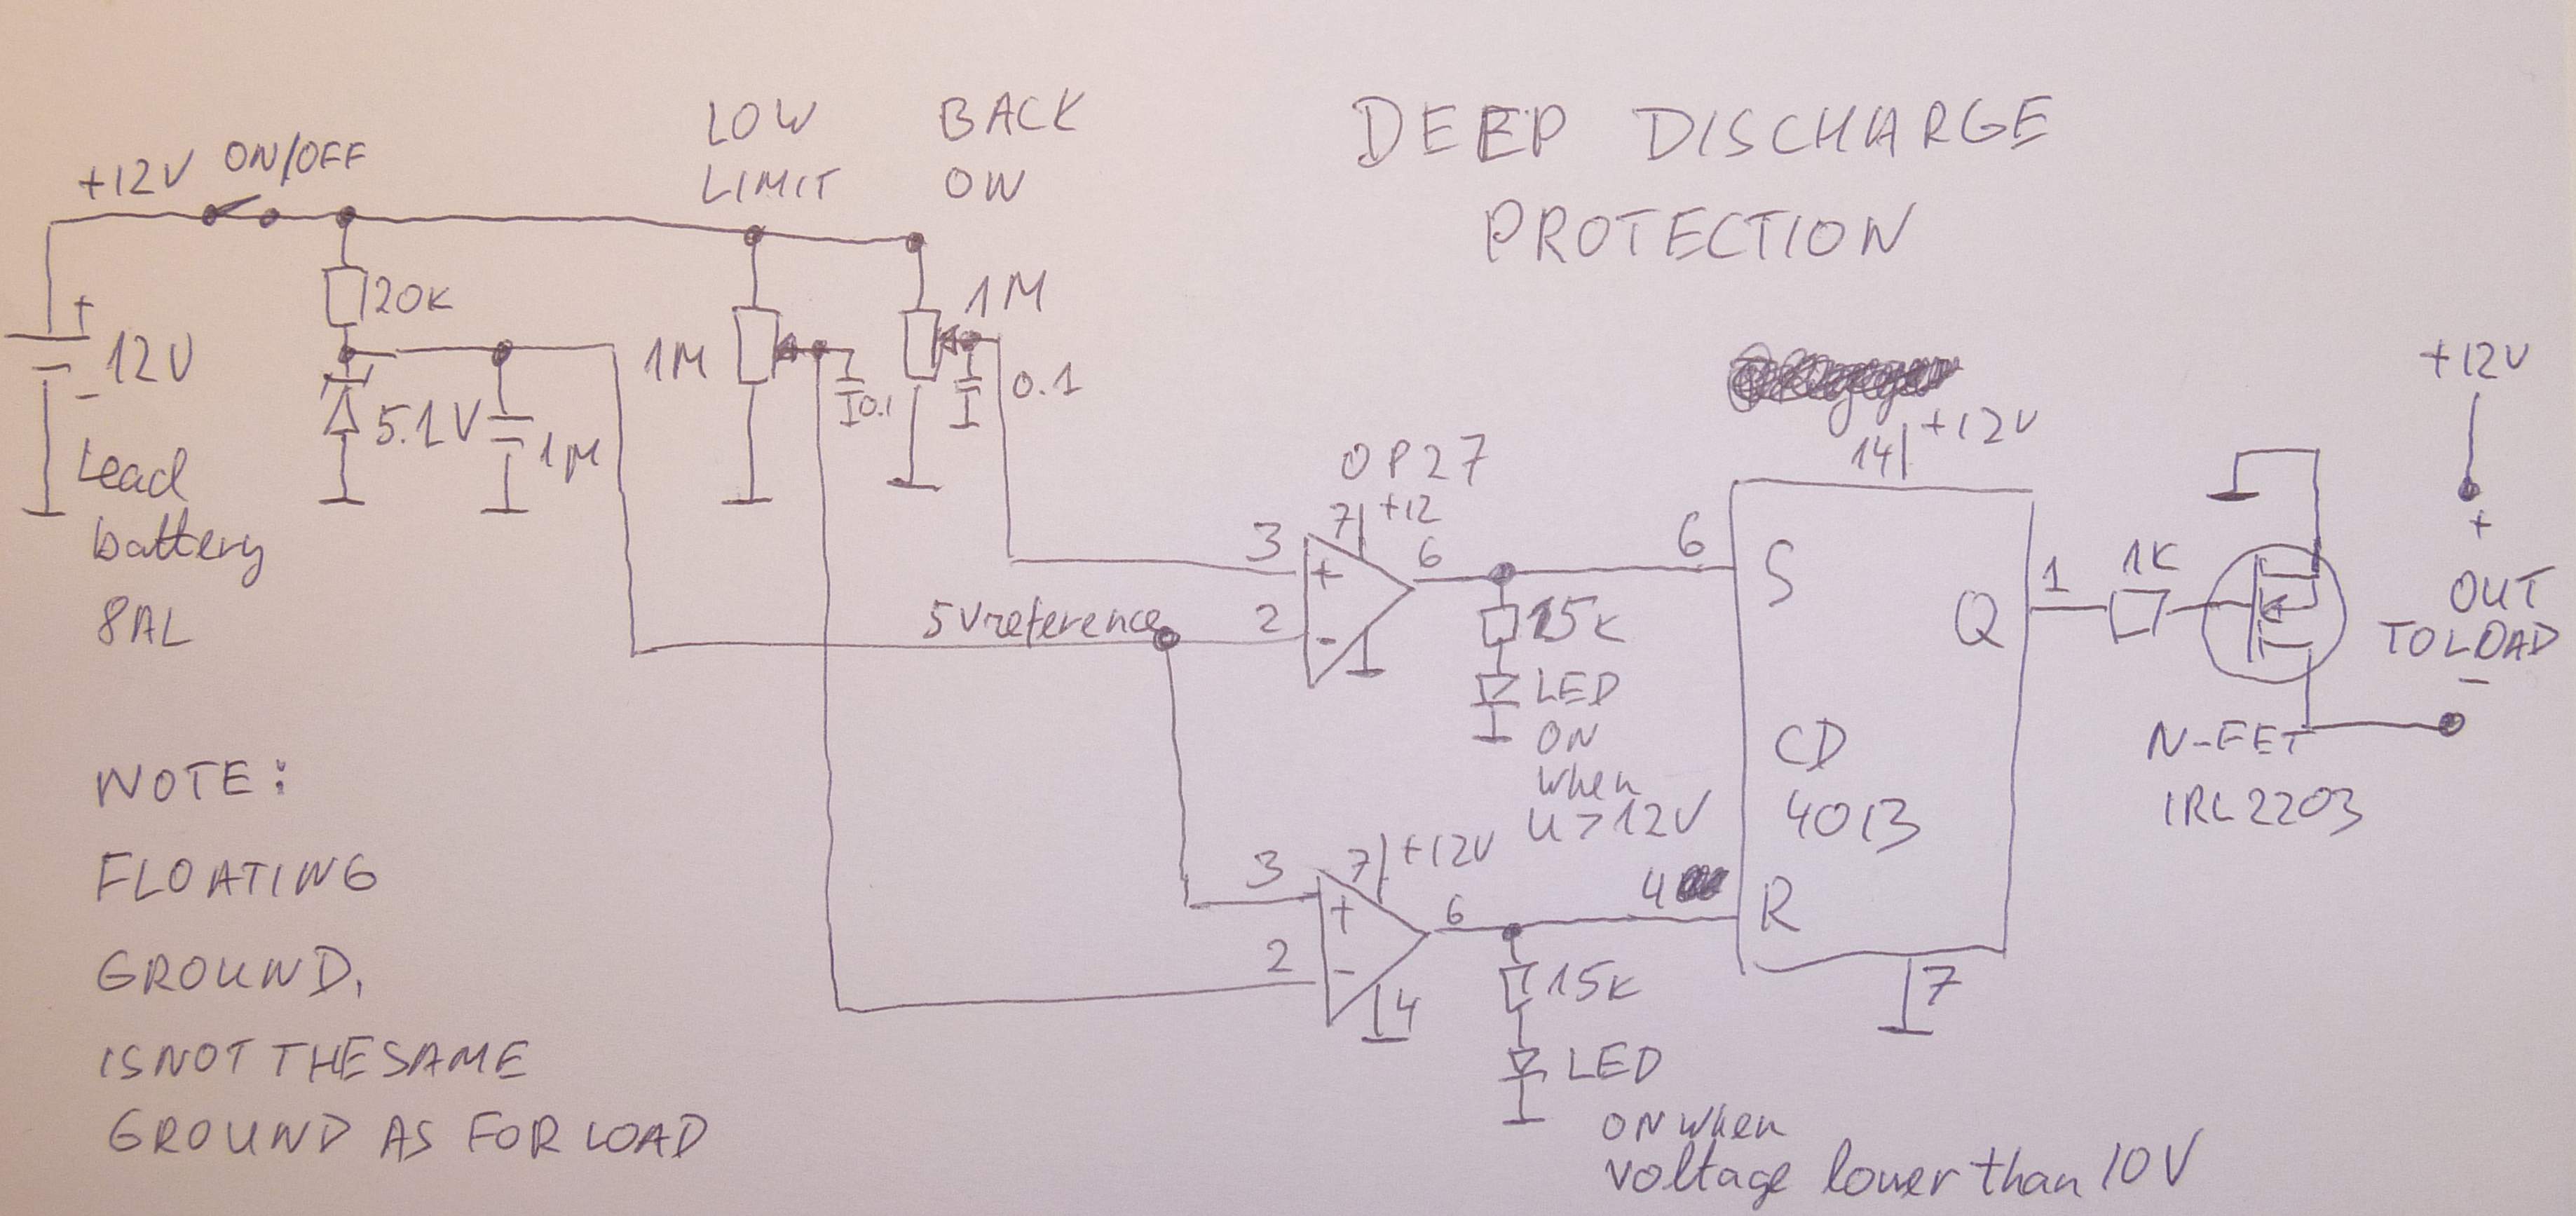 DEEP DISCHARGE
PROTECTION
LOW
LIMIT
BACK
ON
+12V ON/OFF
+
12V
-
Lead
battery
8AL
20K
5.1V
1M
1M
0.1
1M
0.1
5V reference
OP27
7 +12
3
+
2
-
6
15K
LED
ON
when
U>12V
3
+
2
-
7 +12V
4
6
15K
LED
ON when
voltage lower than 10V
14 +12V
6
S
Q
CD
4013
4
R
7
1
1K
N-FET
IRL2203
+12V
+
OUT
TO LOAD
-
NOTE:
FLOATING
GROUND,
IS NOT THE SAME
GROUND AS FOR LOAD